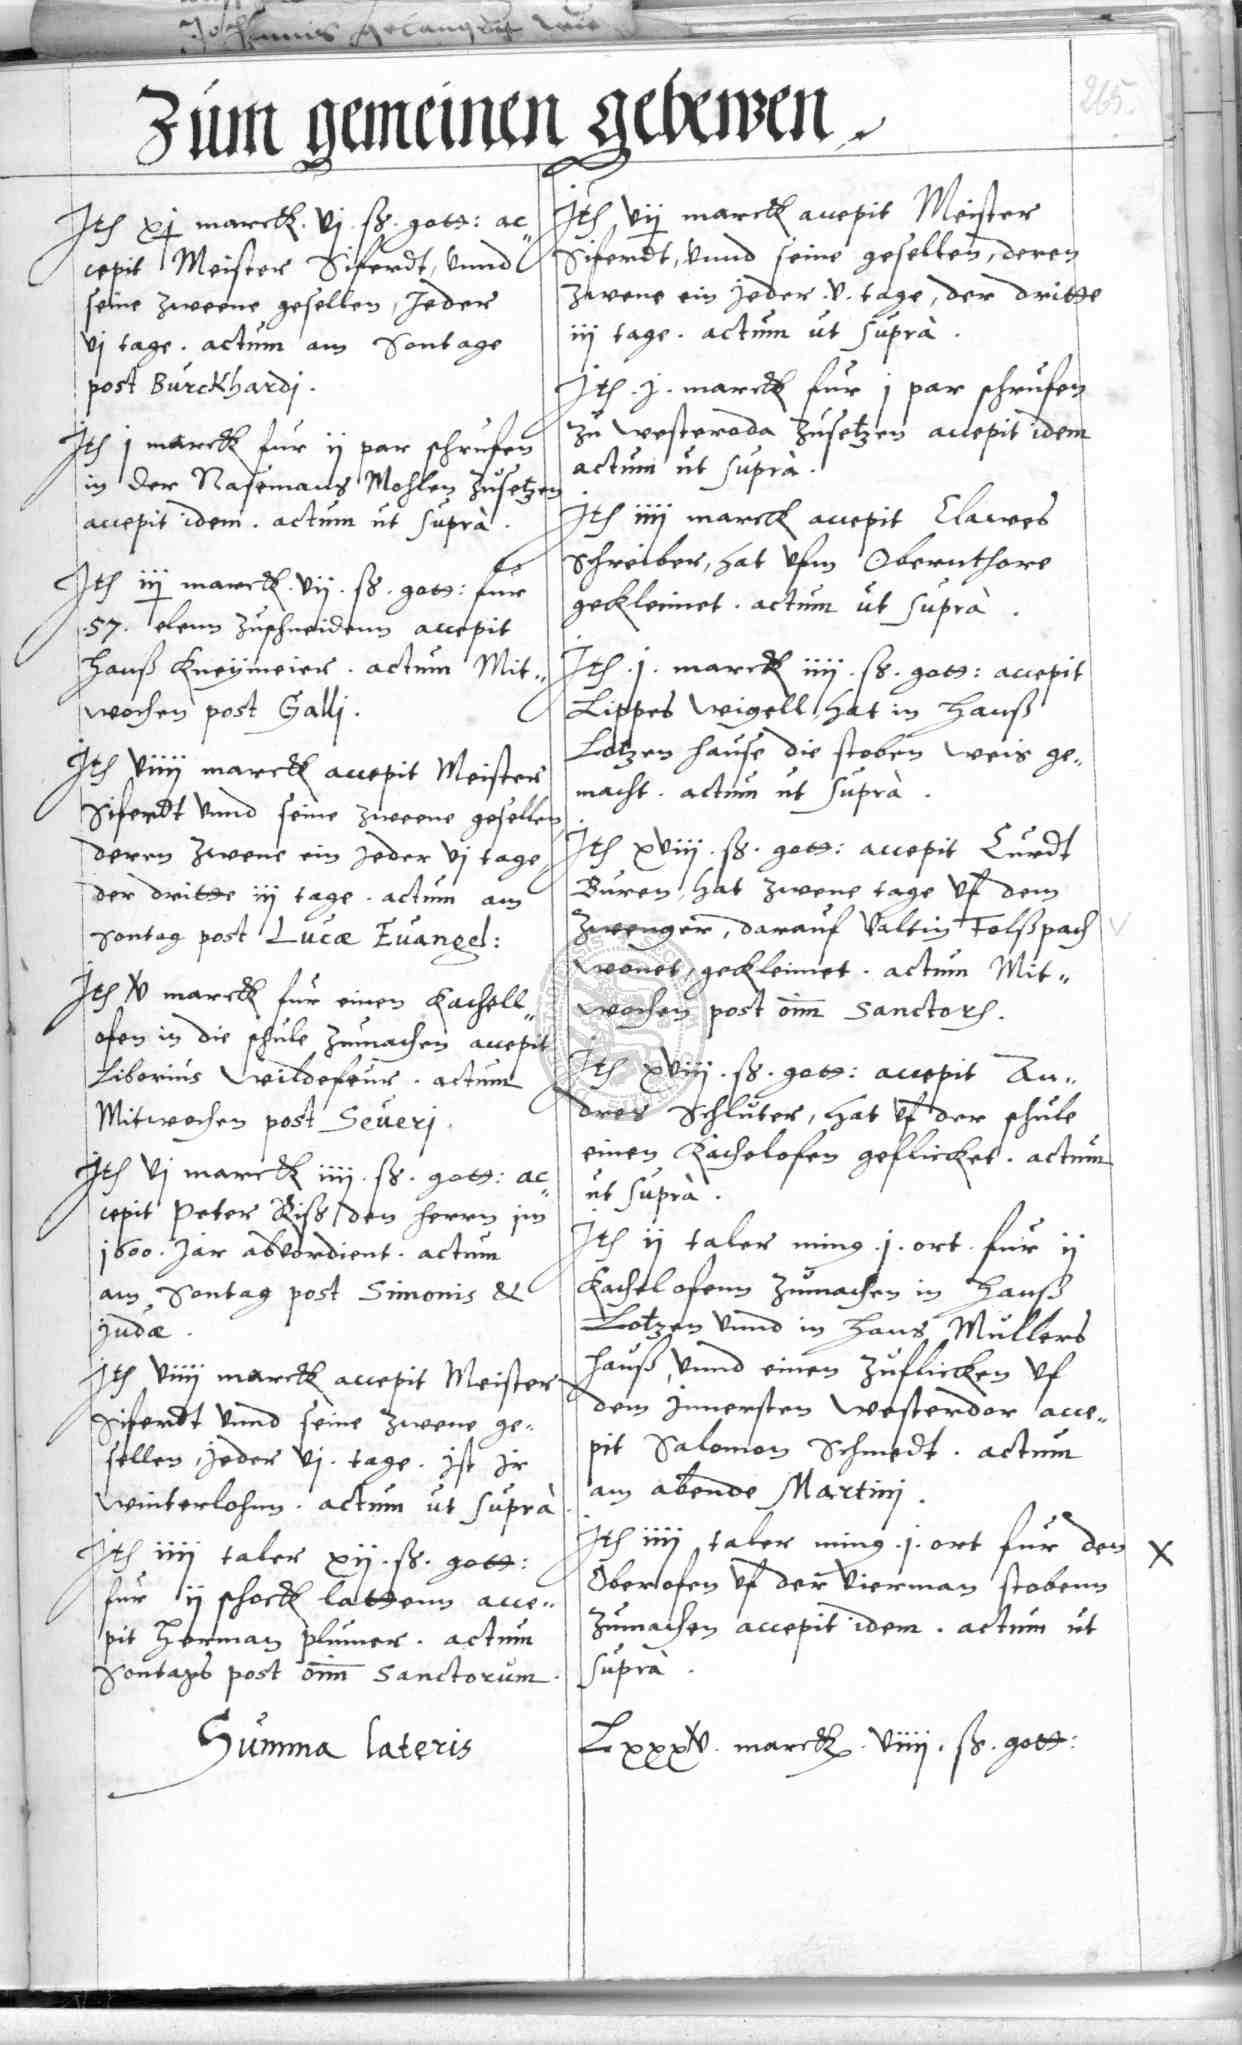 265.
Zum gemeinen gebewen
Ite xj marck. vj. ß. gott: ac„
cepit Meister Siferdt, vnnd
seine zweene gesellen, Jeder
vj tage. actum am Sontage
post Burckhardj.
Ite j marck fur ij par schrufen
in der Nasemans Mohlen zusetzen
accepit idem. actum ut suprà.
Ite iij marck. vij. ß. gott: fur
.57. elenn zuschneidenn accepit
Hanß Kneijmeier. actum Mit„
wochen post Gallj.
Ite viiij marck accepit Meister
Siferdt vnnd seine zweene gesellen
deren zwene ein Jeder vj tage
der dritte iij tage. actum am
Sontag post Lucæ Euangel:
Ite v marck fur einen Kachell„
ofen in die schule zumachen accepit
Liborius Wildefeur. actum
Mitwochen post Seuerj.
Ite vj marck iiij. ß. gott: ac„
cepit Peter Riß, den herrn jm
1600. Jar abvordient. actum
am Sontag post Simonis &
Judæ.
Ite viiij marck accepit Meister
Siferdt vnnd seine zwene ge„
sellen, jeder vj. tage. jst jr
winterlohnn. actum ut suprà
Ite iiij taler xij. ß. gott:
fur ij schock lattenn acce„
pit Herman plumer. actum
Sontags post om̅ Sanctorum.
Ite vij marck accepit Meister
Siferdt, vnnd seine gesellen, deren
zwene ein jeder .v. tage, der dritte
iij tage. actum ut suprà.
Ite .j. marck fur j par schrufen
zu Westeroda zusetzen accepit idem
actum ut suprà.
Ite iiij marck accepit Clawes
Schreiber, hat vfm Obernthore
gekleimet. actum ut suprà.
Ite .j. marck iiij. ß. gott: accepit
Lippes Weigell, hat in Hanß
Lotzen hause die stoben weis ge„
macht. actum ut suprà.
Ite xviij. ß. gott: accepit Curdt
Buren, hat zwene tage vf dem
Zwenger, darauf Valtin Felßpach
wonet, gekleimet. actum Mit„
wochen post om̅ Sanctor.
Ite xviij. ß. gott: accepit An„
dres Schluter, hat vf der schule
einen Kachelofen geflicket. actum
ut suprà.
Ite ij taler ming .j. ort fur ij
Kachelofenn zumachen in Hanß
Lotzen vnnd in Hans Mullers
hauß, vnnd einen zuflicken vf
dem Jnnersten Westerdor acce„
pit Salomon Schmedt. actum
am abende Martinj.
Ite iiij taler ming .j. ort fur den
Oberofen vf der vierman stobenn
zumachen accepit idem. actum ut
suprà.
X
Summa lateris
Lxxxv. marck. viiij. ß. gott: